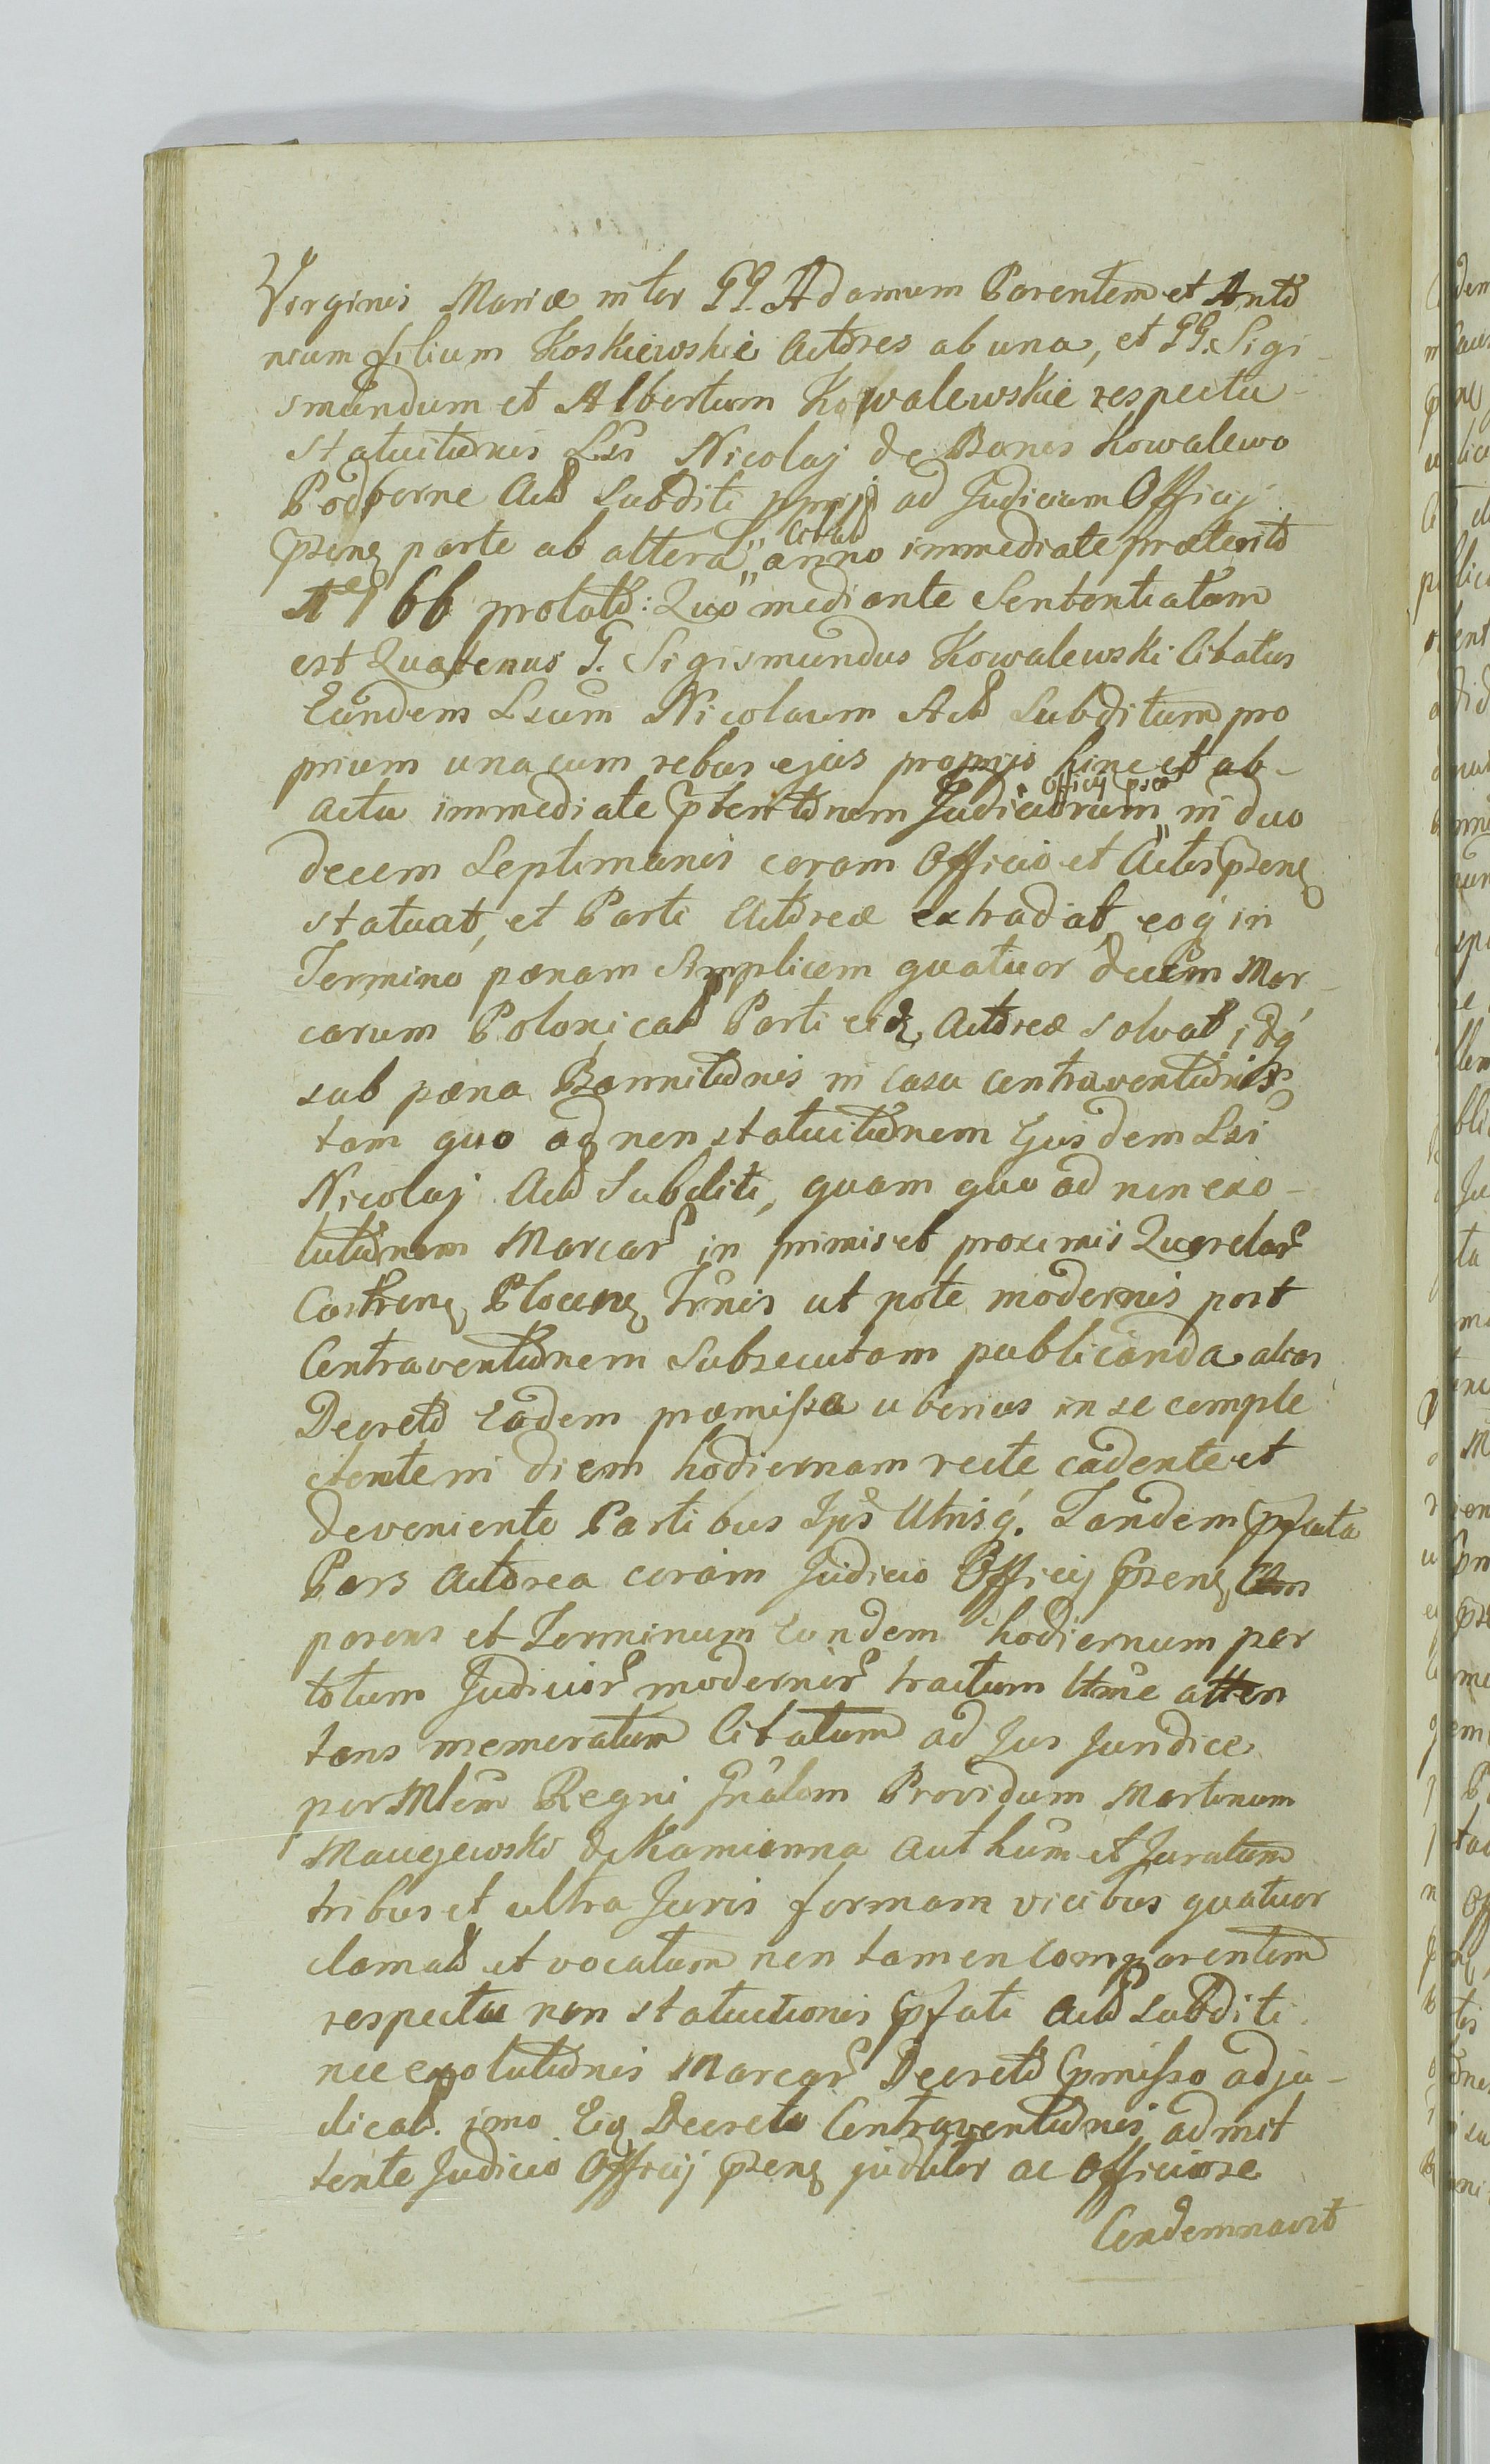 Virginis Mariæ inter GG. Adamum Parentem et Anto
nium filium Koskiewskie Actores ab una, et GG. Sigi
smundum et Albertum Kowalewskie respectu
statuitionis Lsi Nicolaj de Bonis Kowalewo
Podborne Acto Subditi pprij ad Judicium Officij
pseng parte ab altera, Citatos anno immediate præterito
Ao 1766 prolato: Quo mediante Sententiatum
est Quatenus G. Sigismundus Kowalewski Citatus
Eundem Lsum Nicolaum Acto Subditum pro
prium una cum rebus ejus proprijs hinc et ab
actu immediate pteritonem Judiciorum Officij psæ in duo
decem Septimanis coram Officio et Actis pseng
statuat, et Parti Actoreæ extradat, eoq in
Termino pænam Simplicem quatuor decem Mar
carum Polonicat Parti eidz Actoreæ solvat, idq
sub pæna Bannitionis in casu contraventionis
tam quo ad non statuitionem Ejusdem Lsi
Nicolaj Acto Subditi, quam quo ad non exo
lutionem Marcar in primis et proximis Querelar
Castreng Ploceng Trnis ut pote modernis post
Contraventionem Subsecutam publicanda alias
Decreto Eadem præmissa uberius in se comple
ctente in diem hodiernam recte cadente et
deveniente Partibus Ips Utrisq. Tandem pfata
Pars Actorea coram Judicio Officij pseng Com
parens et Terminum Eundem hodiernum per
totum Judicior modernor tractum Utme atten
tans memoratum Citatum ad Jus Juridice
per Mlem Regni Gnalem Providum Martinum
Maciejewski de Kamionna Authum et Juratum
tribus et ultra Juris formam vicibus quatuor
clamat et vocatum non tamen comparentem
respectu non statuitionis pfati Acto subditi
nec exolutionis Marcar Decreto pmisso adju
dicat. imo Eiq Decreto Contraventionis admit
tente Judicio Officij pseng judliter ac Officiose
Condemnavit